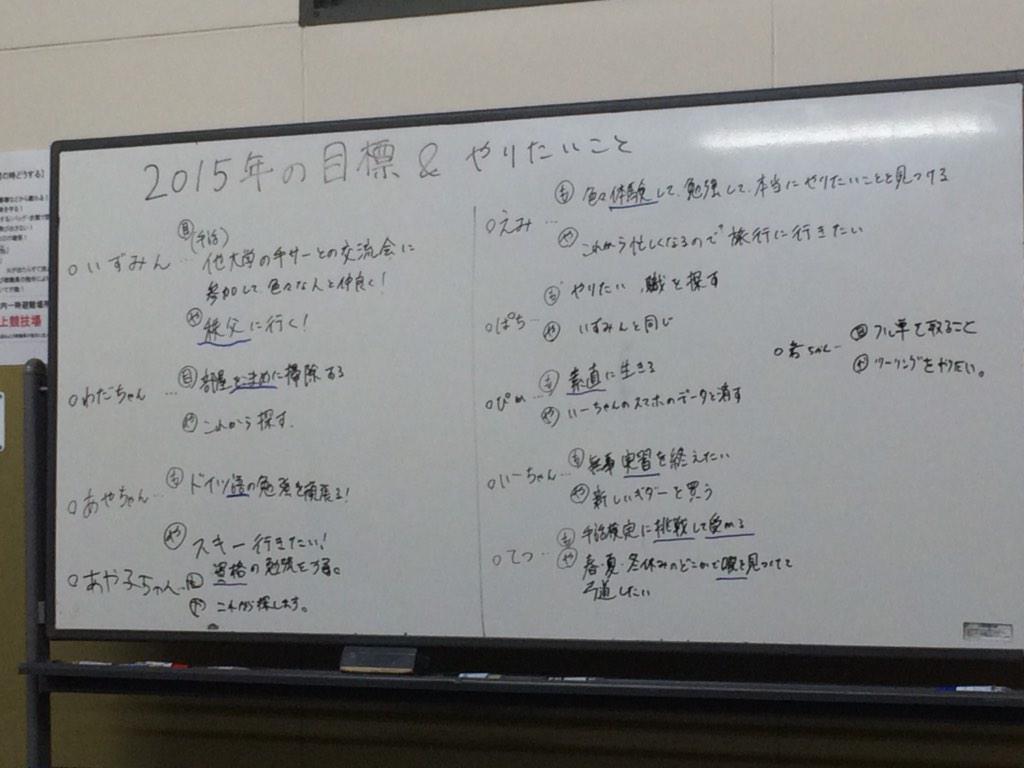 2015年の目標 & やりたいこと
○いずみん…
目
(手話)
他大学の手サーとの交流会に
参加して、色々な人と仲良く!
や 秩父に行く!
○わだちゃん…
目 部屋をまめに掃除する
や これから探す.
○あやちゃん…
も ドイツ語の勉強を頑張る!
や スキー行きたい!
○あや子ちゃん…
目 資格の勉強をする。
や これから探します。
○えみ…
も 色々体験して、勉強して、本当にやりたいことを見つける
や これから忙しくなるので旅行に行きたい
○ぱち…
も やりたい、職を探す
や いずみんと同じ
○ぴの…
も 素直に生きる
や いーちゃんのスマホのデータを消す
○いーちゃん…
も 無事実習を終えたい
や 新しいギターを買う
○てつ…
も 手話検定に挑戦して受かる
や 春・夏・冬休みのどこかで暇を見つけて
弓道したい
ちゃん…
目 フル単を取ること
や ツーリングをやりたい。
の時どうする】
内一時避難場所
上競技場